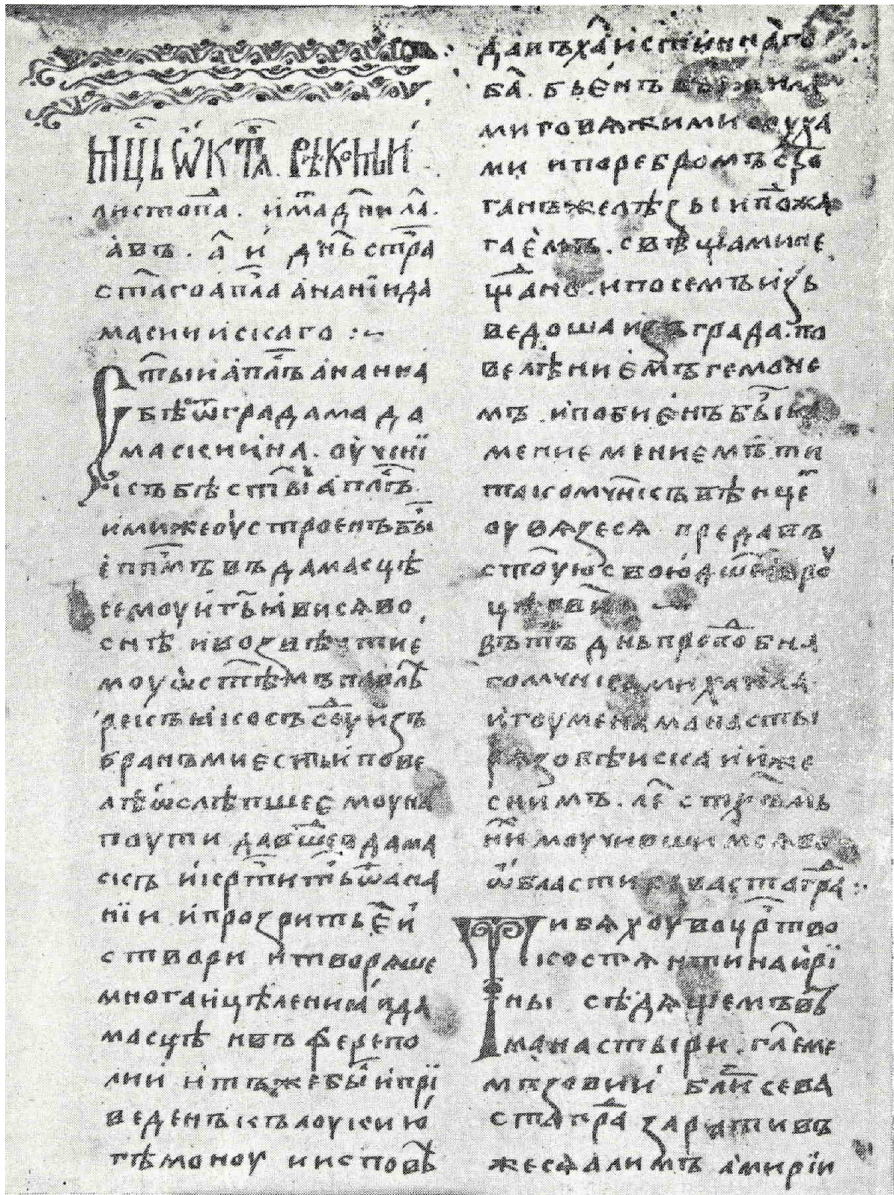 мц҃ь ѡ҆кт҃ѧ. рѣкомыи
листопа. и҆ма дн҃и л҃а.
а҆въ. а҃ и҆ дн҃ь стр҃а
ст҃аго а҆пл҃а а҆нанїи да
маскиискаго :~
Ст҃ыи а҆пл҃ъ а҆наниа
бѣ ѿ града ма да
маскииna. оу҆чени
къ бѣ ст҃ыи а҆пл҃ъ.
ими же оу҆строенъ бы҃
е҆пп҃мъ въ дамасцѣ
семоу и҆ гь҃ ꙗ҆висѧ во
снѣ и возвѣсти е҆
моу ѡ҆ ст҃ѣмъ павлѣ
рекъ ꙗ҆ко съсоу҃ изъ
бранъ ми есть и҆ пове
лѣ ѡ҆слѣпшее моу на
поути давш҃е в дама
скъ и҆ кр҃тити ѿ а҆на
нїи и҆ прозрить е҆и҆
створи и҆ творѧше
многа и҆цѣлениꙗ в да
масцѣ и въ ферепо
лии и҆ тъ же бы҃ и҆ при
веденъ къ лоукию҆
гѣмоноу и исповѣ
давъ ха҃ и҆стиннаго
ба҃. бьѐнъ жила
ми говѧжими о҆ суха
ми и по ребромъ стро
ганъ желѣзы и҆ пожа
гае҆мъ. свѣщами не
щадно. и по семъ изъ
ведоша и изъ града. по
велѣниѐмъ гемоне
мъ. и побиѐнъ бы҃ ка
мениеmeниемъ. ти
тако мчн҃къ вѣнце҃
оу҆вѧзесѧ предавъ
ст҃оую свою дш҃ю
въ тъ дн҃ь прпо҃бна
го мчн҃ка михаила
и҆гоумена манасты
рѧ зовѣиска и и҆же
с нимъ. л҃е ст҃ рова
моучивши мсѧ въ
ѡ҆бласти севастагра :·
Ти бѧхоу во цр҃тво
костѧнтина и҆ рї
ны сѣдѧщемъ въ
манастыри. гл҃еме
мъ зовии бли҃ сева
ста гра҃ зарати въ
же сѧ алимъ а҆мирїи